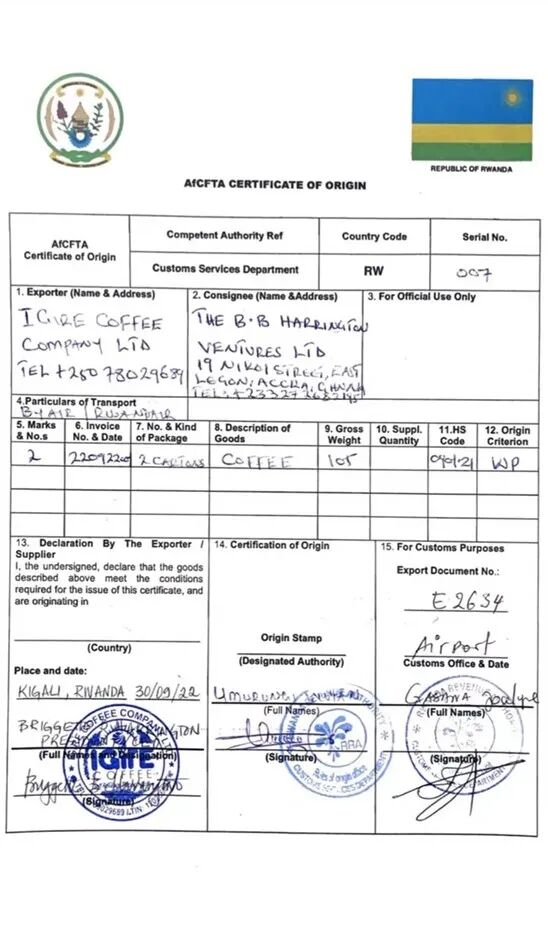 REPUBLIC OF RWANDA
AfCFTA CERTIFICATE OF ORIGIN
AfCFTA
Certificate of Origin
Competent Authority Ref
Country Code
Serial No.
Customs Services Department
RW
007
1. Exporter (Name & Address)
IGIRE COFFEE
COMPANY LTD
TEL +250 78029689
2. Consignee (Name &Address)
THE B.B HARRINGTON
VENTURES LTD
19 NIKOI STREET, EAST
LEGON, ACCRA, GHANA
TEL:
3. For Official Use Only
4.Particulars of Transport
BY AIR / RWANDAIR
5. Marks
& No.s
6. Invoice
No. & Date
7. No. & Kind
of Package
8. Description of
Goods
9. Gross
Weight
10. Suppl.
Quantity
11.HS
Code
12. Origin
Criterion
2
2 CARTONS
COFFEE
105
WP
13. Declaration By The Exporter /
Supplier
I, the undersigned, declare that the goods
described above meet the conditions
required for the issue of this certificate, and
are originating in
(Country)
Place and date:
KIGALI, RWANDA 30/09/22
(Full Names and Designation)
(Signature)
14. Certification of Origin
Origin Stamp
(Designated Authority)
(Full Names)
(Signature)
RRA
15. For Customs Purposes
Export Document No.:
E 2634
Airport
Customs Office & Date
(Full Names)
(Signature)